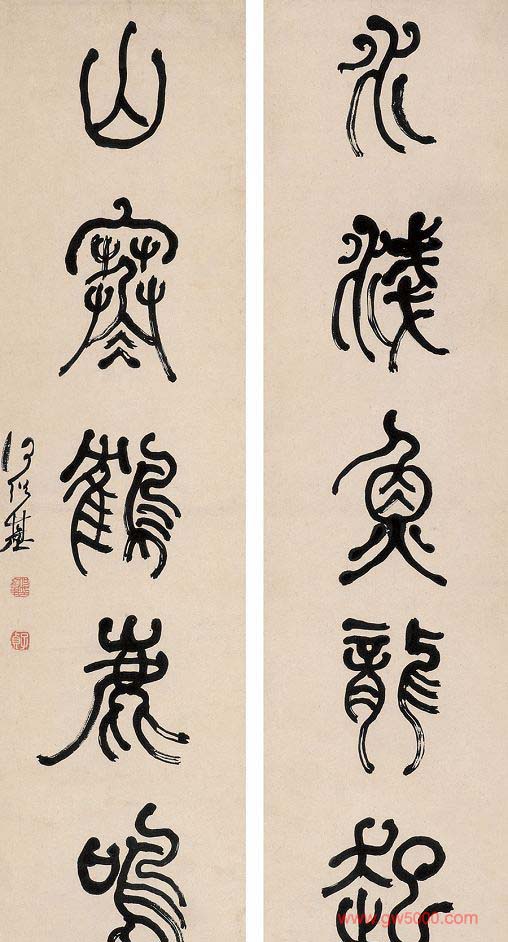 水淺魚龍知
山寒鶴鹿鳴
何紹基
www.gw5000.com